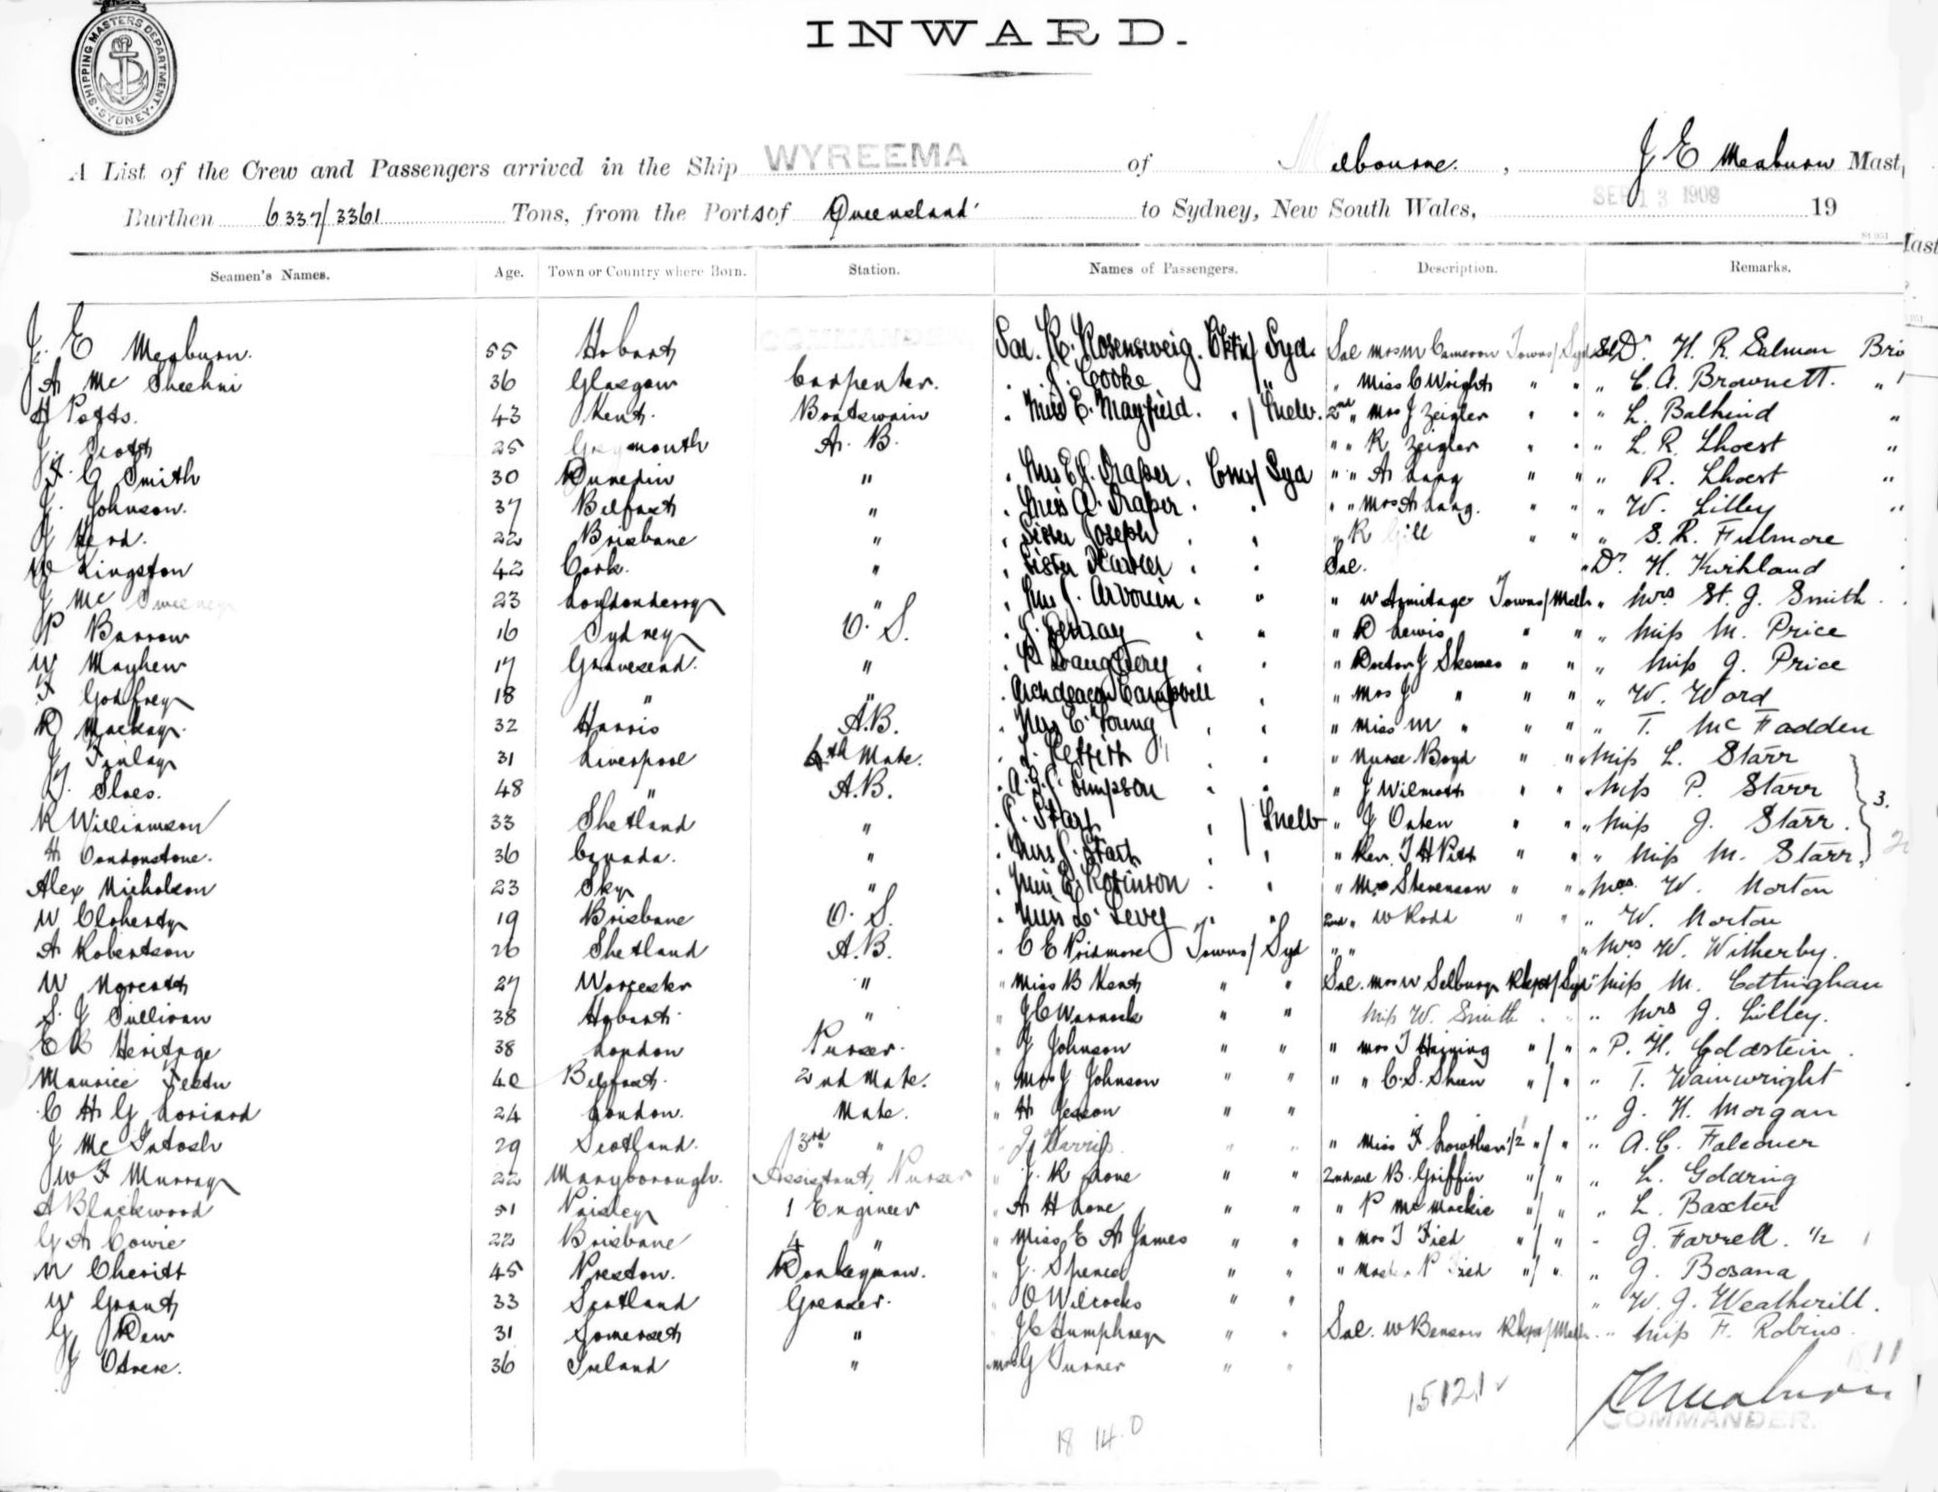 INWARD.
SHIPPING MASTERS DEPARTMENT SYDNEY
A List of the Crew and Passengers arrived in the Ship WYREEMA of Melbourne, J E Meaburn Mast
Burthen 6337/3361 Tons, from the Ports of Queensland to Sydney, New South Wales, SEP 13 1909 19
Seamen's Names. Age. Town or Country where Born. Station. Names of Passengers. Description. Remarks.
J. E Meaburn. 55 Hobart COMMANDER Sal. K. Rosensweig. Syd. Sal Mrs M Cameron Towns/Syd Sal Dr. H. R. Salmon Bri
A Mc Sheehni 36 Glasgow Carpenter. " J. Cooke " Miss C Wright " " " C. A. Brownett. "
H Potts. 43 Kent. Boatswain " Miss E. Mayfield. " / Melb. 2nd " Mrs J Zeigler " " " L. Balhind "
J. Scott 25 Greymouth A. B. " " K Zeigler " " " L. R. Lhoest "
F. C Smith 30 Dunedin " " Mrs E J. Draper. Cns/ Syd " " A Lang " " " R. Lhoest "
J. Johnson. 37 Belfast " " Miss A. Draper. " " " Mrs A Lang. " " " W. Lilley "
J Herd. 22 Brisbane " " Sister Joseph " " " K Gill " " " S. R. Fulmore
W Kingston 42 Cork. " " Sister " " Sal. " Dr. H. Kirkland
J Mc Sweeney 23 Londonderry " " Mrs J. " " " W Armitage Towns/Melb " Mrs St. J. Smith
P Barrow 16 Sydney O. S. " J. " " " D Lewis " " " Miss M. Price
W Mayhew 17 Gravesend. " " " " " Doctor J Skenes " " " Miss J. Price
F Godfrey 18 " " " Archdeacon Campbell " " Mrs J " " " " W. Ward
D Mackay. 32 Harris A.B. " Mrs E. Young " " " Miss M " " " " T. Mc Fadden
J Finlay 31 Liverpool 4th Mate. " J. Pettitt " " " Nurse Boyd " " " Miss L. Starr
J. Sloes. 48 " A.B. " A. J. C. Simpson " " " J Wilmott " " " Miss P. Starr 3.
K Williamson 33 Shetland " " C. Start " / Melb " J Oaten " " " Miss J. Starr.
H Condonstone. 36 Canada. " " Mrs C. Start " " " Rev. T H Pitt " " " Miss M. Starr
Alex Nicholson 23 Sky " " Miss E. Robinson " " " Mrs Stevenson " " " Mrs. W. Norton
W Cloherty 19 Brisbane O. S. " Miss L. Levy " " 2nd " W Rodd " " " W. Norton
A Robertson 26 Shetland A.B. " C E Pridmore Towns/ Syd " " " Mrs W. Witherby.
W Norcott 27 Worcester " " Miss B Kent " " Sal. Mrs W Selbury " Miss M. Cottinghan
S. J Sullivan 38 Hobart. " " J C Warnock " " Miss W. Smith " " " Mrs J. Lilley.
E B Heritage 38 London Purser. " J Johnson " " " Mrs T Haining " / " " P. H. Goldstein
Maurice 40 Belfast. 2nd Mate. " Mrs J Johnson " " " " C. S. Sheen " / " " T. Wainwright
C H G Loriard 24 London. Mate. " H Jesson " " " J. H. Morgan
J Mc Intosh 29 Scotland. 3rd " " J Harris " " " Miss F Lowther 1/2 " / " " A. C. Falconer
W F Murray 22 Maryborough. Assistant Purser " J. K Lone " " 2nd sal B. Griffin " / " " L. Goldring
A Blackwood 51 Paisley 1 Engineer " A H Lone " " " P Mc Mackie " / " " L. Baxter
G A Cowie 22 Brisbane 4 " " Miss E A James " " " Mrs T Fied " / " " J. Farrell. 1/2
N Cheritt 45 Preston. Donkeyman. " J. Spence " " " Master P Fied " / " " J. Bosana
W Grant 33 Scotland Greaser. " O Wilcocks " " " W. J. Weatherill.
G Dew 31 Somerset " " J C Humphrey " " Sal. W Benson " Miss F. Robins
J Odree. 36 Ireland " Mrs G Turner " "
18 14.0 15 12.1 11
J E Meaburn
COMMANDER.